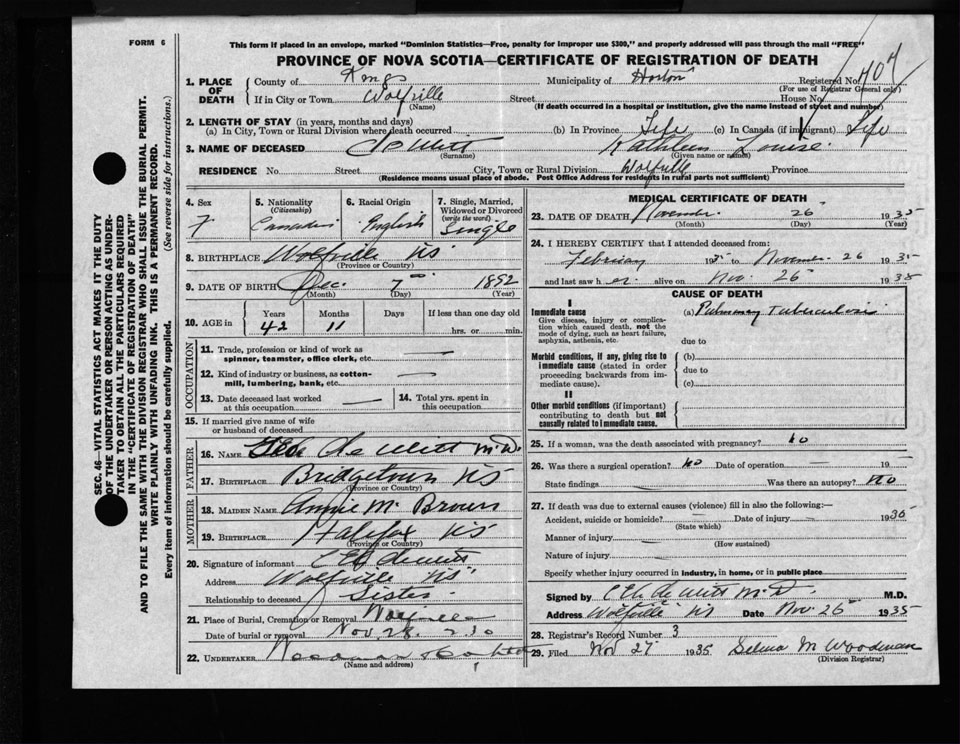 FORM 6
This form if placed in an envelope, marked "Dominion Statistics—Free, penalty for improper use $300," and properly addressed will pass through the mail "FREE"
PROVINCE OF NOVA SCOTIA—CERTIFICATE OF REGISTRATION OF DEATH
1. PLACE OF DEATH
County of Kings Municipality of Horton Registered No. 707
(For use of Registrar General only)
If in City or Town Wolfville Street House No.
(Name) (If death occurred in a hospital or institution, give the name instead of street and number)
2. LENGTH OF STAY (in years, months and days)
(a) In City, Town or Rural Division where death occurred (b) In Province Life (c) In Canada (if immigrant) Life
3. NAME OF DECEASED De Witt Kathleen Louise
(Surname) (Given name or names)
RESIDENCE No. Street City, Town or Rural Division Wolfville Province
(Residence means usual place of abode. Post Office Address for residents in rural parts not sufficient)
SEC. 46—VITAL STATISTICS ACT MAKES IT THE DUTY
OF THE UNDERTAKER OR PERSON ACTING AS UNDER-
TAKER TO OBTAIN ALL THE PARTICULARS REQUIRED
IN THE "CERTIFICATE OF REGISTRATION OF DEATH"
AND TO FILE THE SAME WITH THE DIVISION REGISTRAR WHO SHALL ISSUE THE BURIAL PERMIT.
WRITE PLAINLY WITH UNFADING INK. THIS IS A PERMANENT RECORD.
Every item of information should be carefully supplied. (See reverse side for instructions.)
4. Sex
F
5. Nationality
(Citizenship)
Canadian
6. Racial Origin
English
7. Single, Married,
Widowed or Divorced
(write the word)
Single
8. BIRTHPLACE Wolfville NS
(Province or Country)
9. DATE OF BIRTH Dec. 7 1892
(Month) (Day) (Year)
10. AGE in Years Months Days If less than one day old
42 11 hrs. or min.
OCCUPATION
11. Trade, profession or kind of work as
spinner, teamster, office clerk, etc. —
12. Kind of industry or business, as cotton-
mill, lumbering, bank, etc. —
13. Date deceased last worked
at this occupation —
14. Total yrs. spent in
this occupation
15. If married give name of wife
or husband of deceased
FATHER
16. NAME Geo De Witt M.D.
17. BIRTHPLACE Bridgetown NS
(Province or Country)
MOTHER
18. MAIDEN NAME Annie M. Brown
19. BIRTHPLACE Halifax NS
(Province or Country)
20. Signature of informant De Witt
Address Wolfville NS
Relationship to deceased Sister
21. Place of Burial, Cremation or Removal Wolfville
Date of burial or removal Nov 28
22. UNDERTAKER Woodman
(Name and address)
MEDICAL CERTIFICATE OF DEATH
23. DATE OF DEATH November 26 1935
(Month) (Day) (Year)
24. I HEREBY CERTIFY that I attended deceased from:
February 193 to November 26 1935
and last saw h er alive on Nov. 25 1935
CAUSE OF DEATH
I
Immediate cause
Give disease, injury or complica-
tion which caused death, not the
mode of dying, such as heart failure,
asphyxia, asthenia, etc.
(a) Pulmonary Tuberculosis
due to
Morbid conditions, if any, giving rise to
immediate cause (stated in order
proceeding backwards from im-
mediate cause).
(b)
due to
(c)
II
Other morbid conditions (if important)
contributing to death but not
causally related to immediate cause.
25. If a woman, was the death associated with pregnancy? No
26. Was there a surgical operation? No Date of operation — 19
State findings — Was there an autopsy? No
27. If death was due to external causes (violence) fill in also the following:—
Accident, suicide or homicide? — Date of injury — 1935
(State which)
Manner of injury —
(How sustained)
Nature of injury —
Specify whether injury occurred in industry, in home, or in public place
Signed by De Witt M.D. M.D.
Address Wolfville NS Date Nov 26 1935
28. Registrar's Record Number 3
29. Filed Nov 27 1935 Selma M Woodman
(Division Registrar)